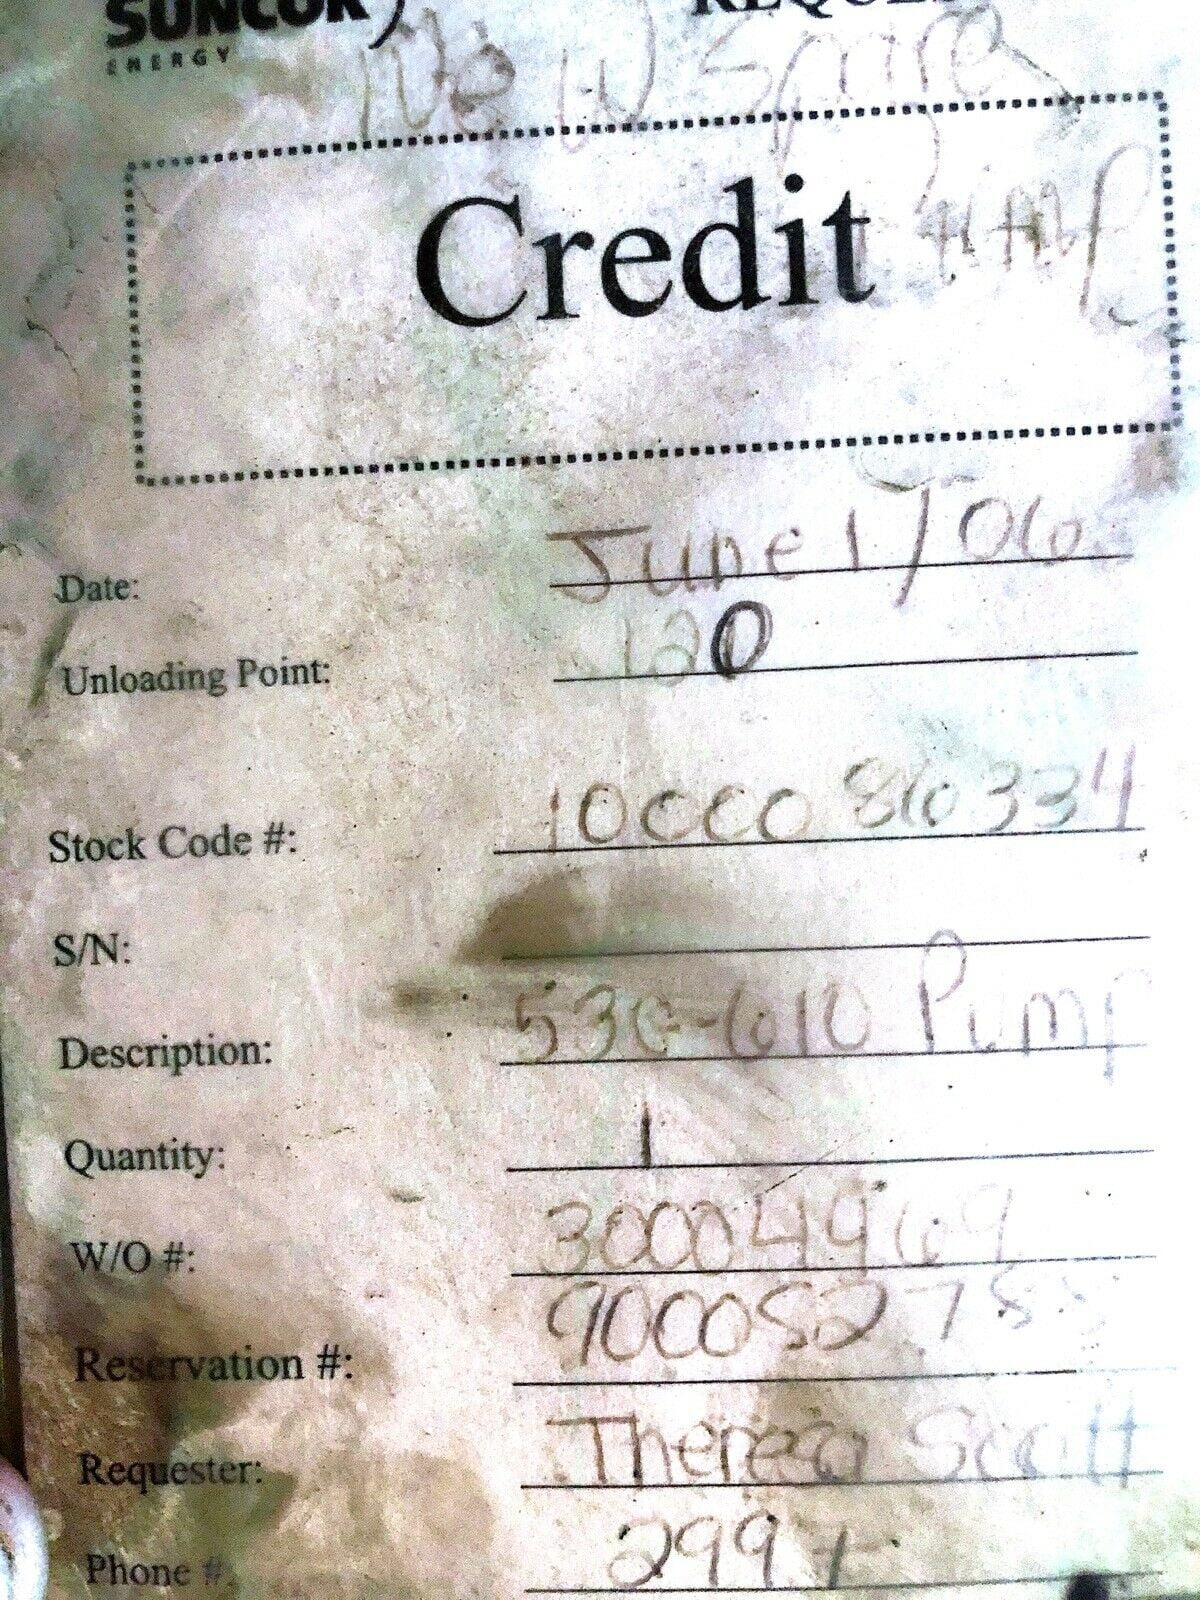 SUNCOR
ENERGY
New Spare
Credit
Pump
Date: June 1/06
Unloading Point: 120
Stock Code #: 1000086334
S/N:
Description: 530-610 Pump
Quantity: 1
W/O #: 30004969
Reservation #:
Requester: Theresa Scott
Phone #: